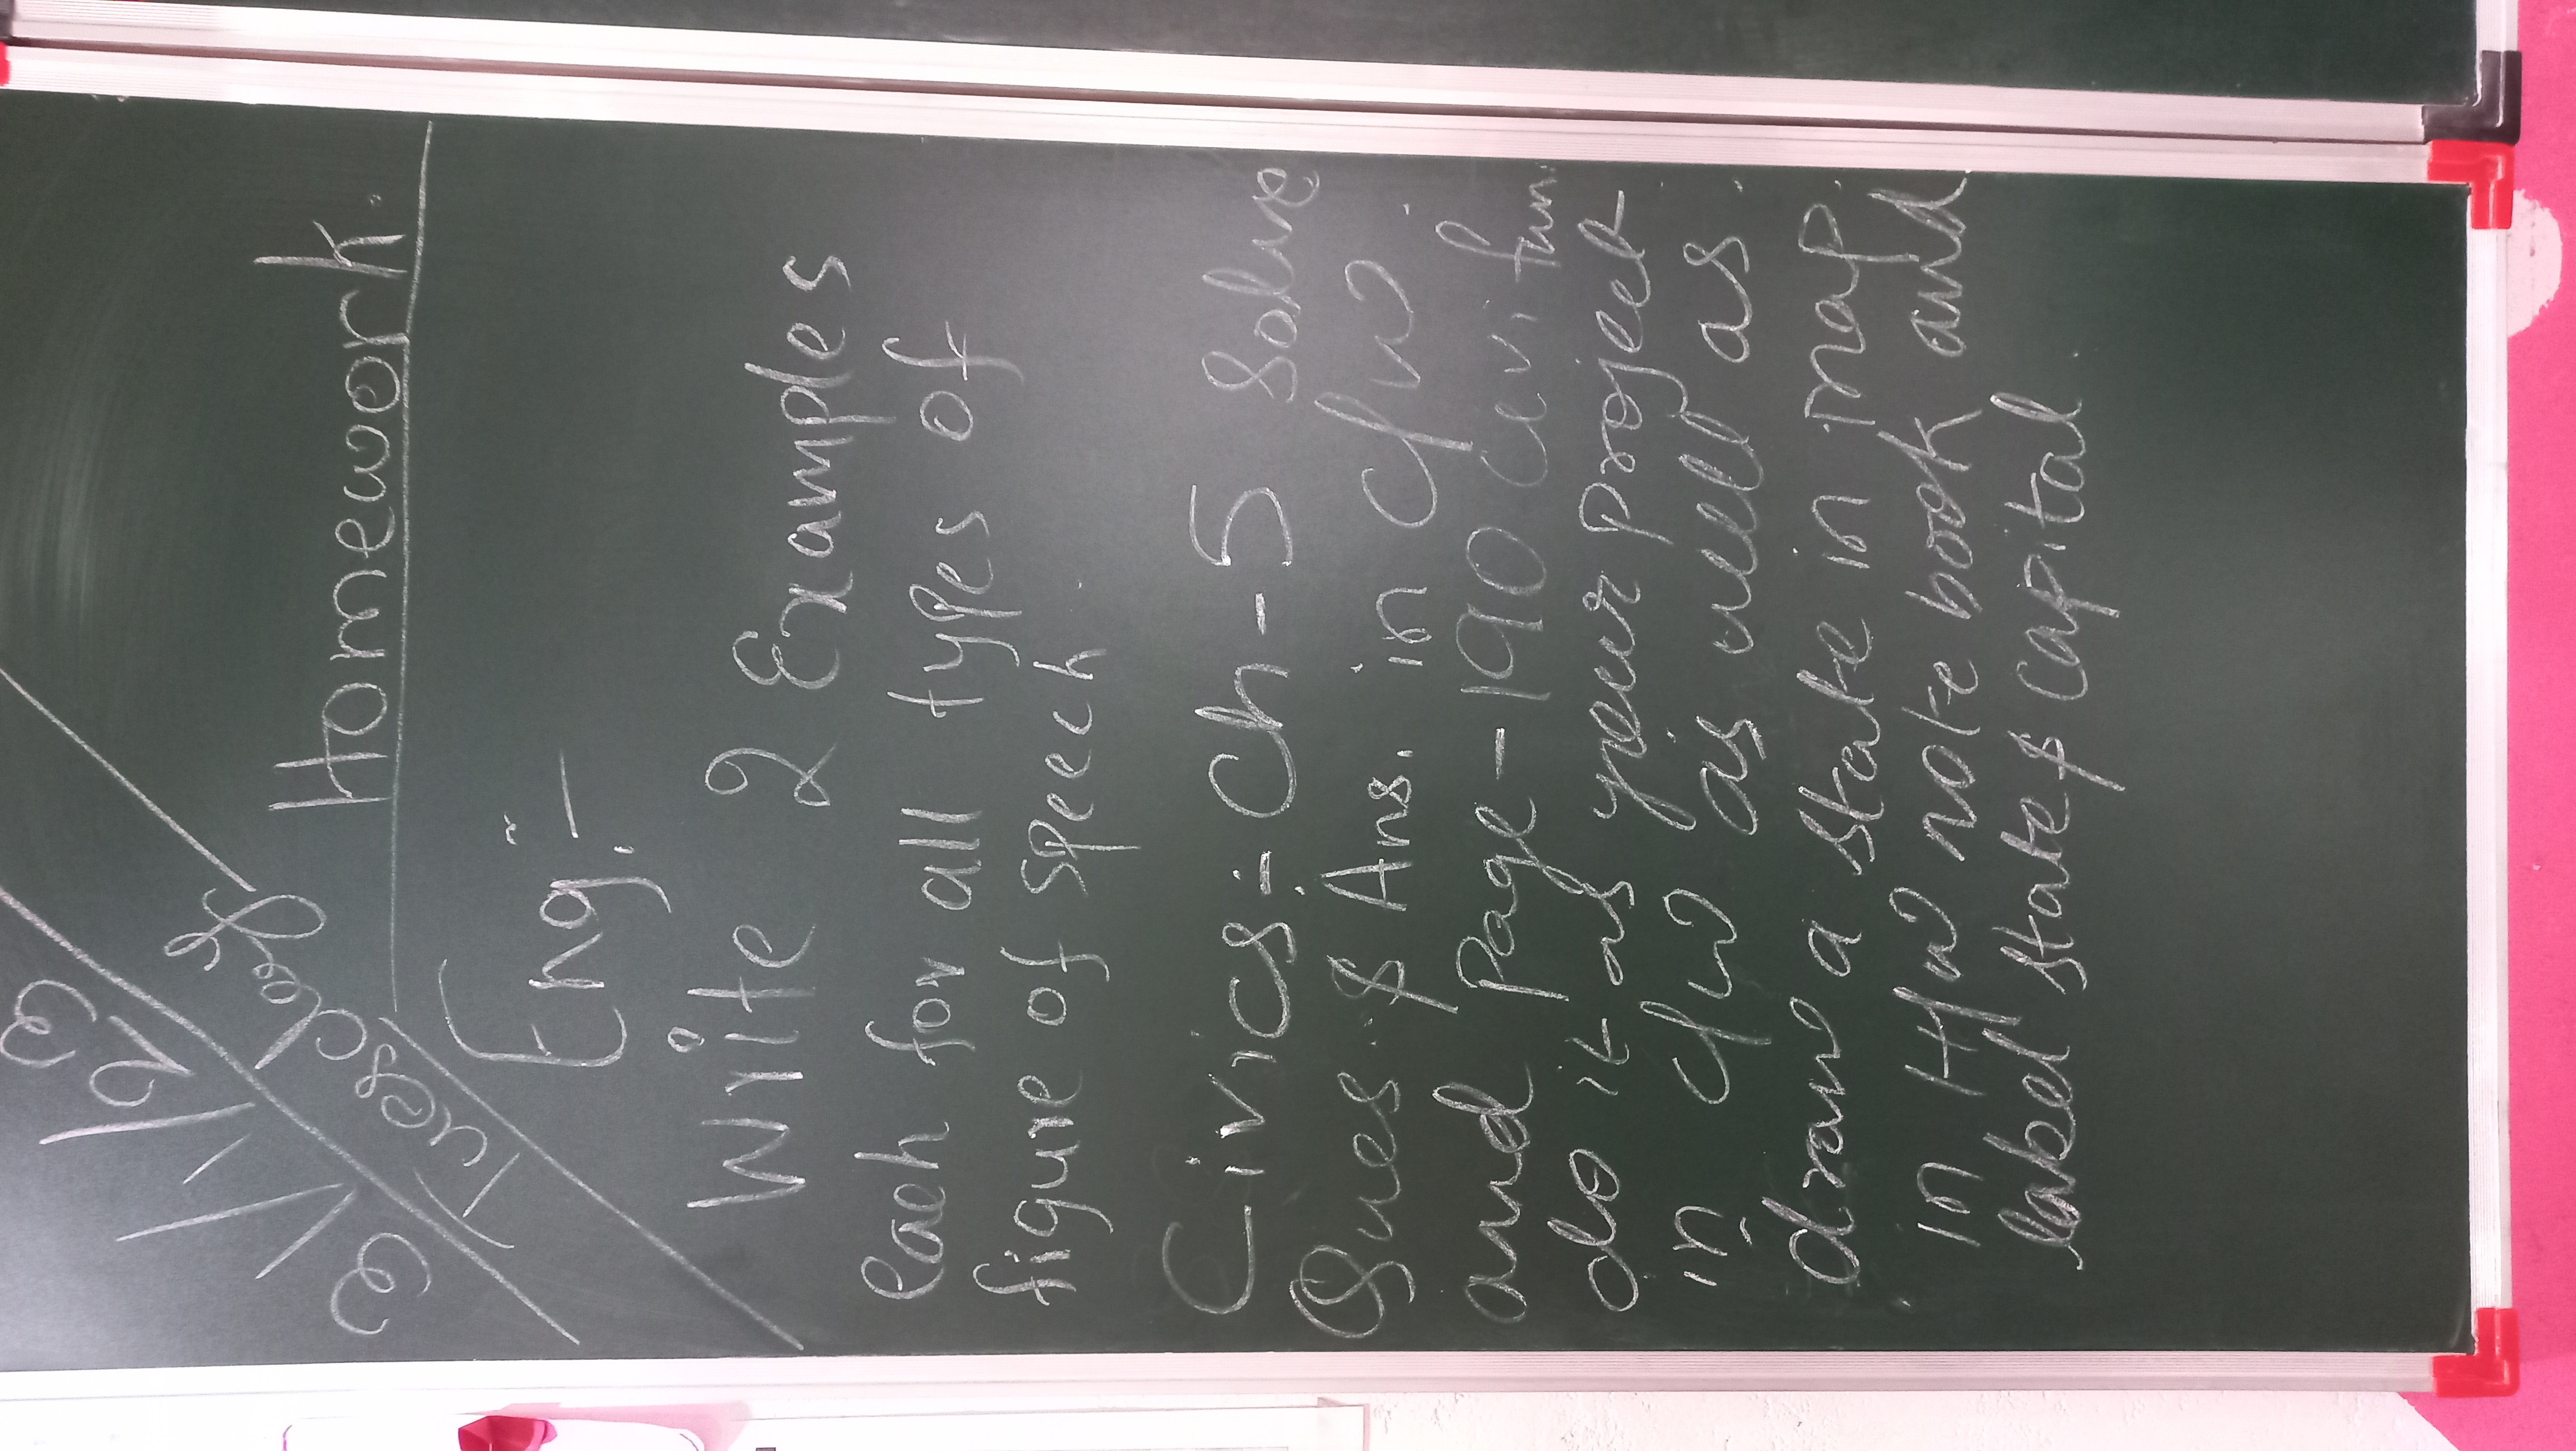 3/1/23
Tuesday
Homework.
Eng:-
Write 2 Examples
each for all types of
figure of speech.
Civics:- Ch-5 Solve
Ques. & Ans. in C/w
and Page-190 Civi fun
do it as your project
in C/w as well as
draw a state in map
in H/w note book and
label state & capital.